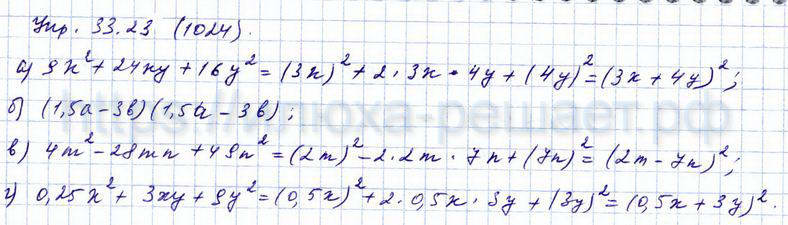 Упр. 33.23 (1024).
а) 9x² + 24xy + 16y² = (3x)² + 2 · 3x · 4y + (4y)² = (3x + 4y)²;
б) (1,5a – 3b)(1,5a – 3b);
в) 4m² – 28mn + 49n² = (2m)² – 2 · 2m · 7n + (7n)² = (2m – 7n)²;
г) 0,25x² + 3xy + 9y² = (0,5x)² + 2 · 0,5x · 3y + (3y)² = (0,5x + 3y)².
https://клюха-решает.рф